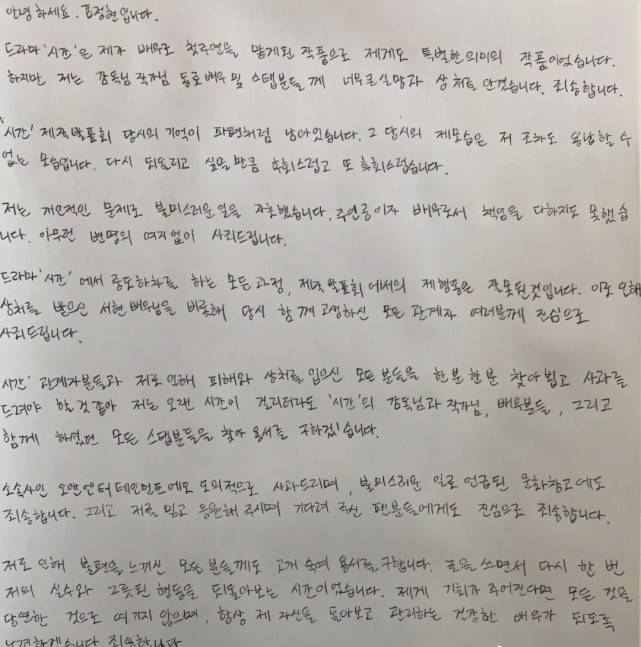 안녕하세요. 김정현입니다.
드라마 '시간'은 제가 배우로 첫주연을 맡게된 작품으로 제게도 특별한 의미의 작품이었습니다.
하지만 저는 감독님 작가님 동료배우 및 스탭분들께 너무 큰 실망과 상처를 안겼습니다. 죄송합니다.
'시간' 제작발표회 당시의 기억이 파편처럼 남아있습니다. 그 당시의 제모습은 저 조차도 용납할 수
없는 모습입니다. 다시 되돌리고 싶을 만큼 후회스럽고 또 후회스럽습니다.
저는 개인적인 문제로 불미스러운 일을 자초했습니다. 주연공이자 배우로서 책임을 다하지도 못했습
니다. 아무런 변명의 여지 없이 사죄드립니다.
드라마 '시간'에서 중도하차를 하는 모든 과정, 제작발표회에서의 제행동은 잘못된것입니다. 이로 인해
상처를 받으신 서현 배우님을 비롯해 당시 함께 고생하신 모든 관계자 여러분께 진심으로
사죄드립니다.
시간' 관계자분들과 저로 인해 피해와 상처를 입으신 모든 분들을 한분한분 찾아뵙고 사과를
드려야 할 것 같아 저는 오랜 시간이 걸리더라도 '시간'의 감독님과 작가님, 배우분들, 그리고
함께 하셨던 모든 스탭분들을 찾아 용서를 구하겠습니다.
소속사인 오앤엔터테인먼트에도 도의적으로 사과드리며, 불미스러운 일로 언급된 문화창고에도
죄송합니다. 그리고 저를 믿고 응원해 주시며 기다려 주신 팬분들에게도 진심으로 죄송합니다.
저로 인해 불편을 느끼신 모든 분들께도 고개 숙여 용서를 구합니다. 글을 쓰면서 다시 한 번
저의 실수와 그릇된 행동을 되돌아보는 시간이었습니다. 제게 기회가 주어진다면 모든 것을
당연한 것으로 여기지 않으며, 항상 제 자신을 돌아보고 관리하는 건강한 배우가 되도록
노력하겠습니다 죄송합니다